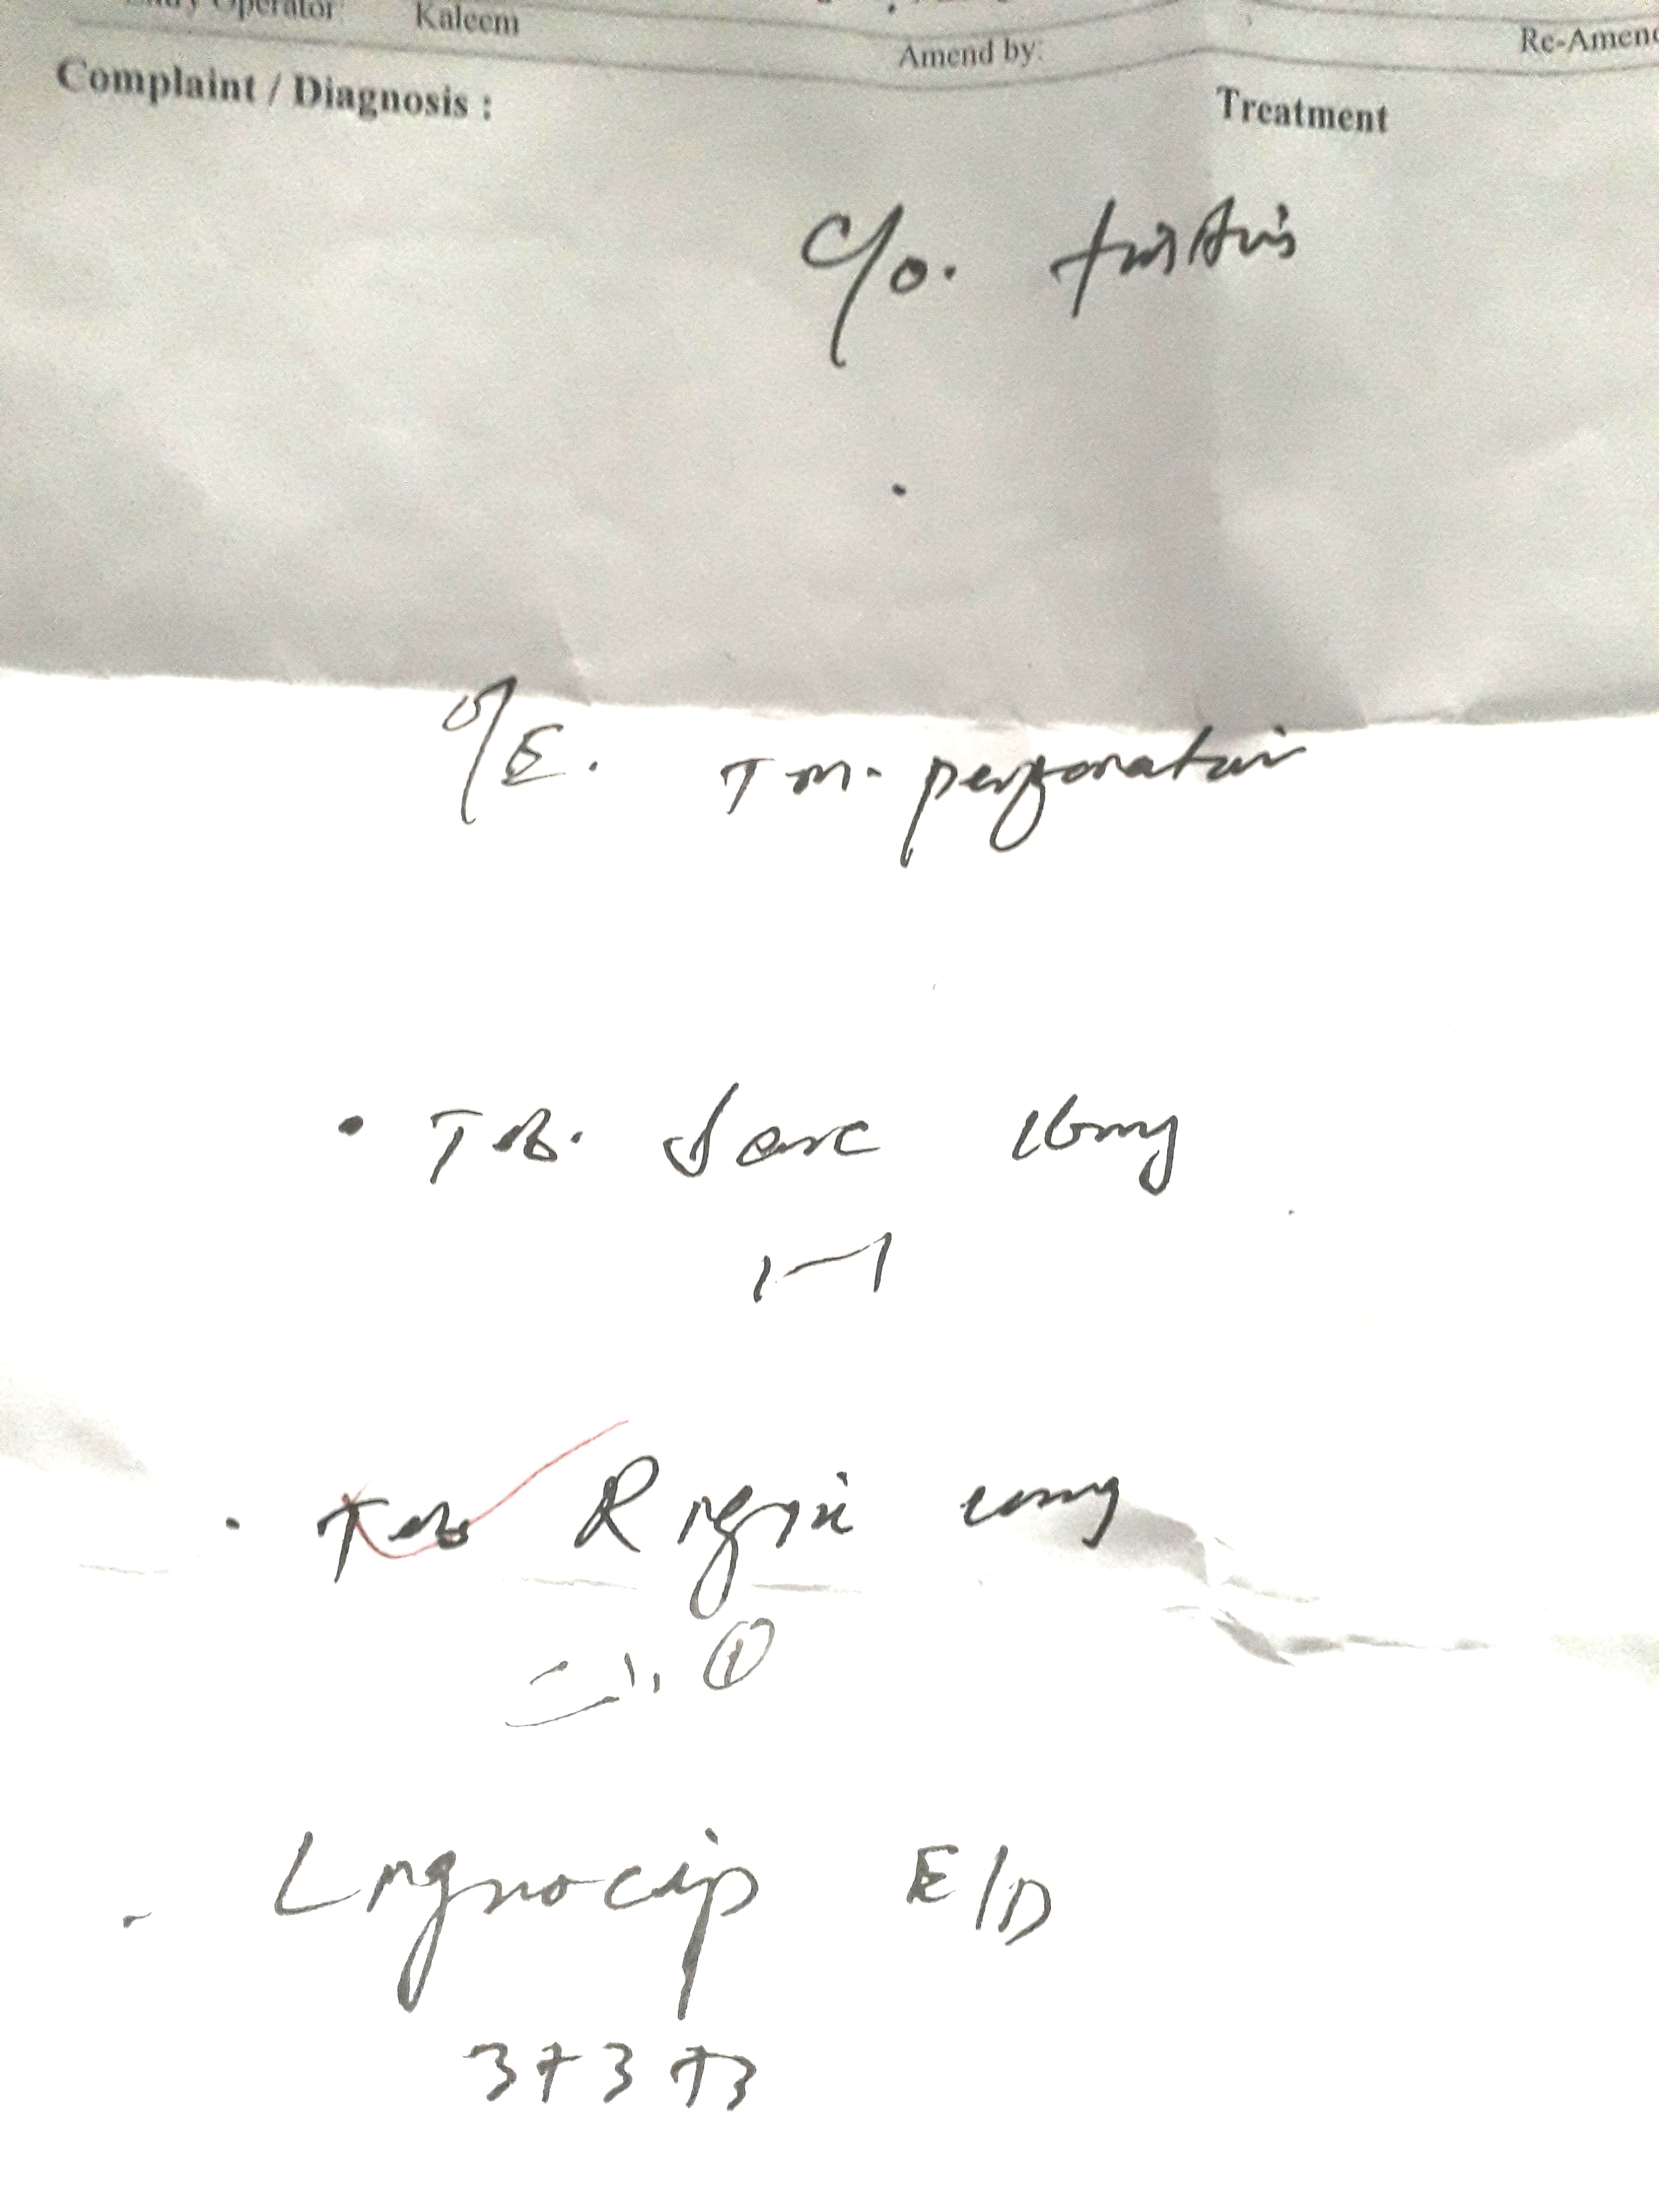 Operator Kaleem
Amend by:
Re-Amend
Complaint / Diagnosis :
Treatment
C/o.
O/E. T m. perforation
Tab. Serc 16mg
1-1
Tab Rigix 10mg
①
Lignocip E/D
3+3+3